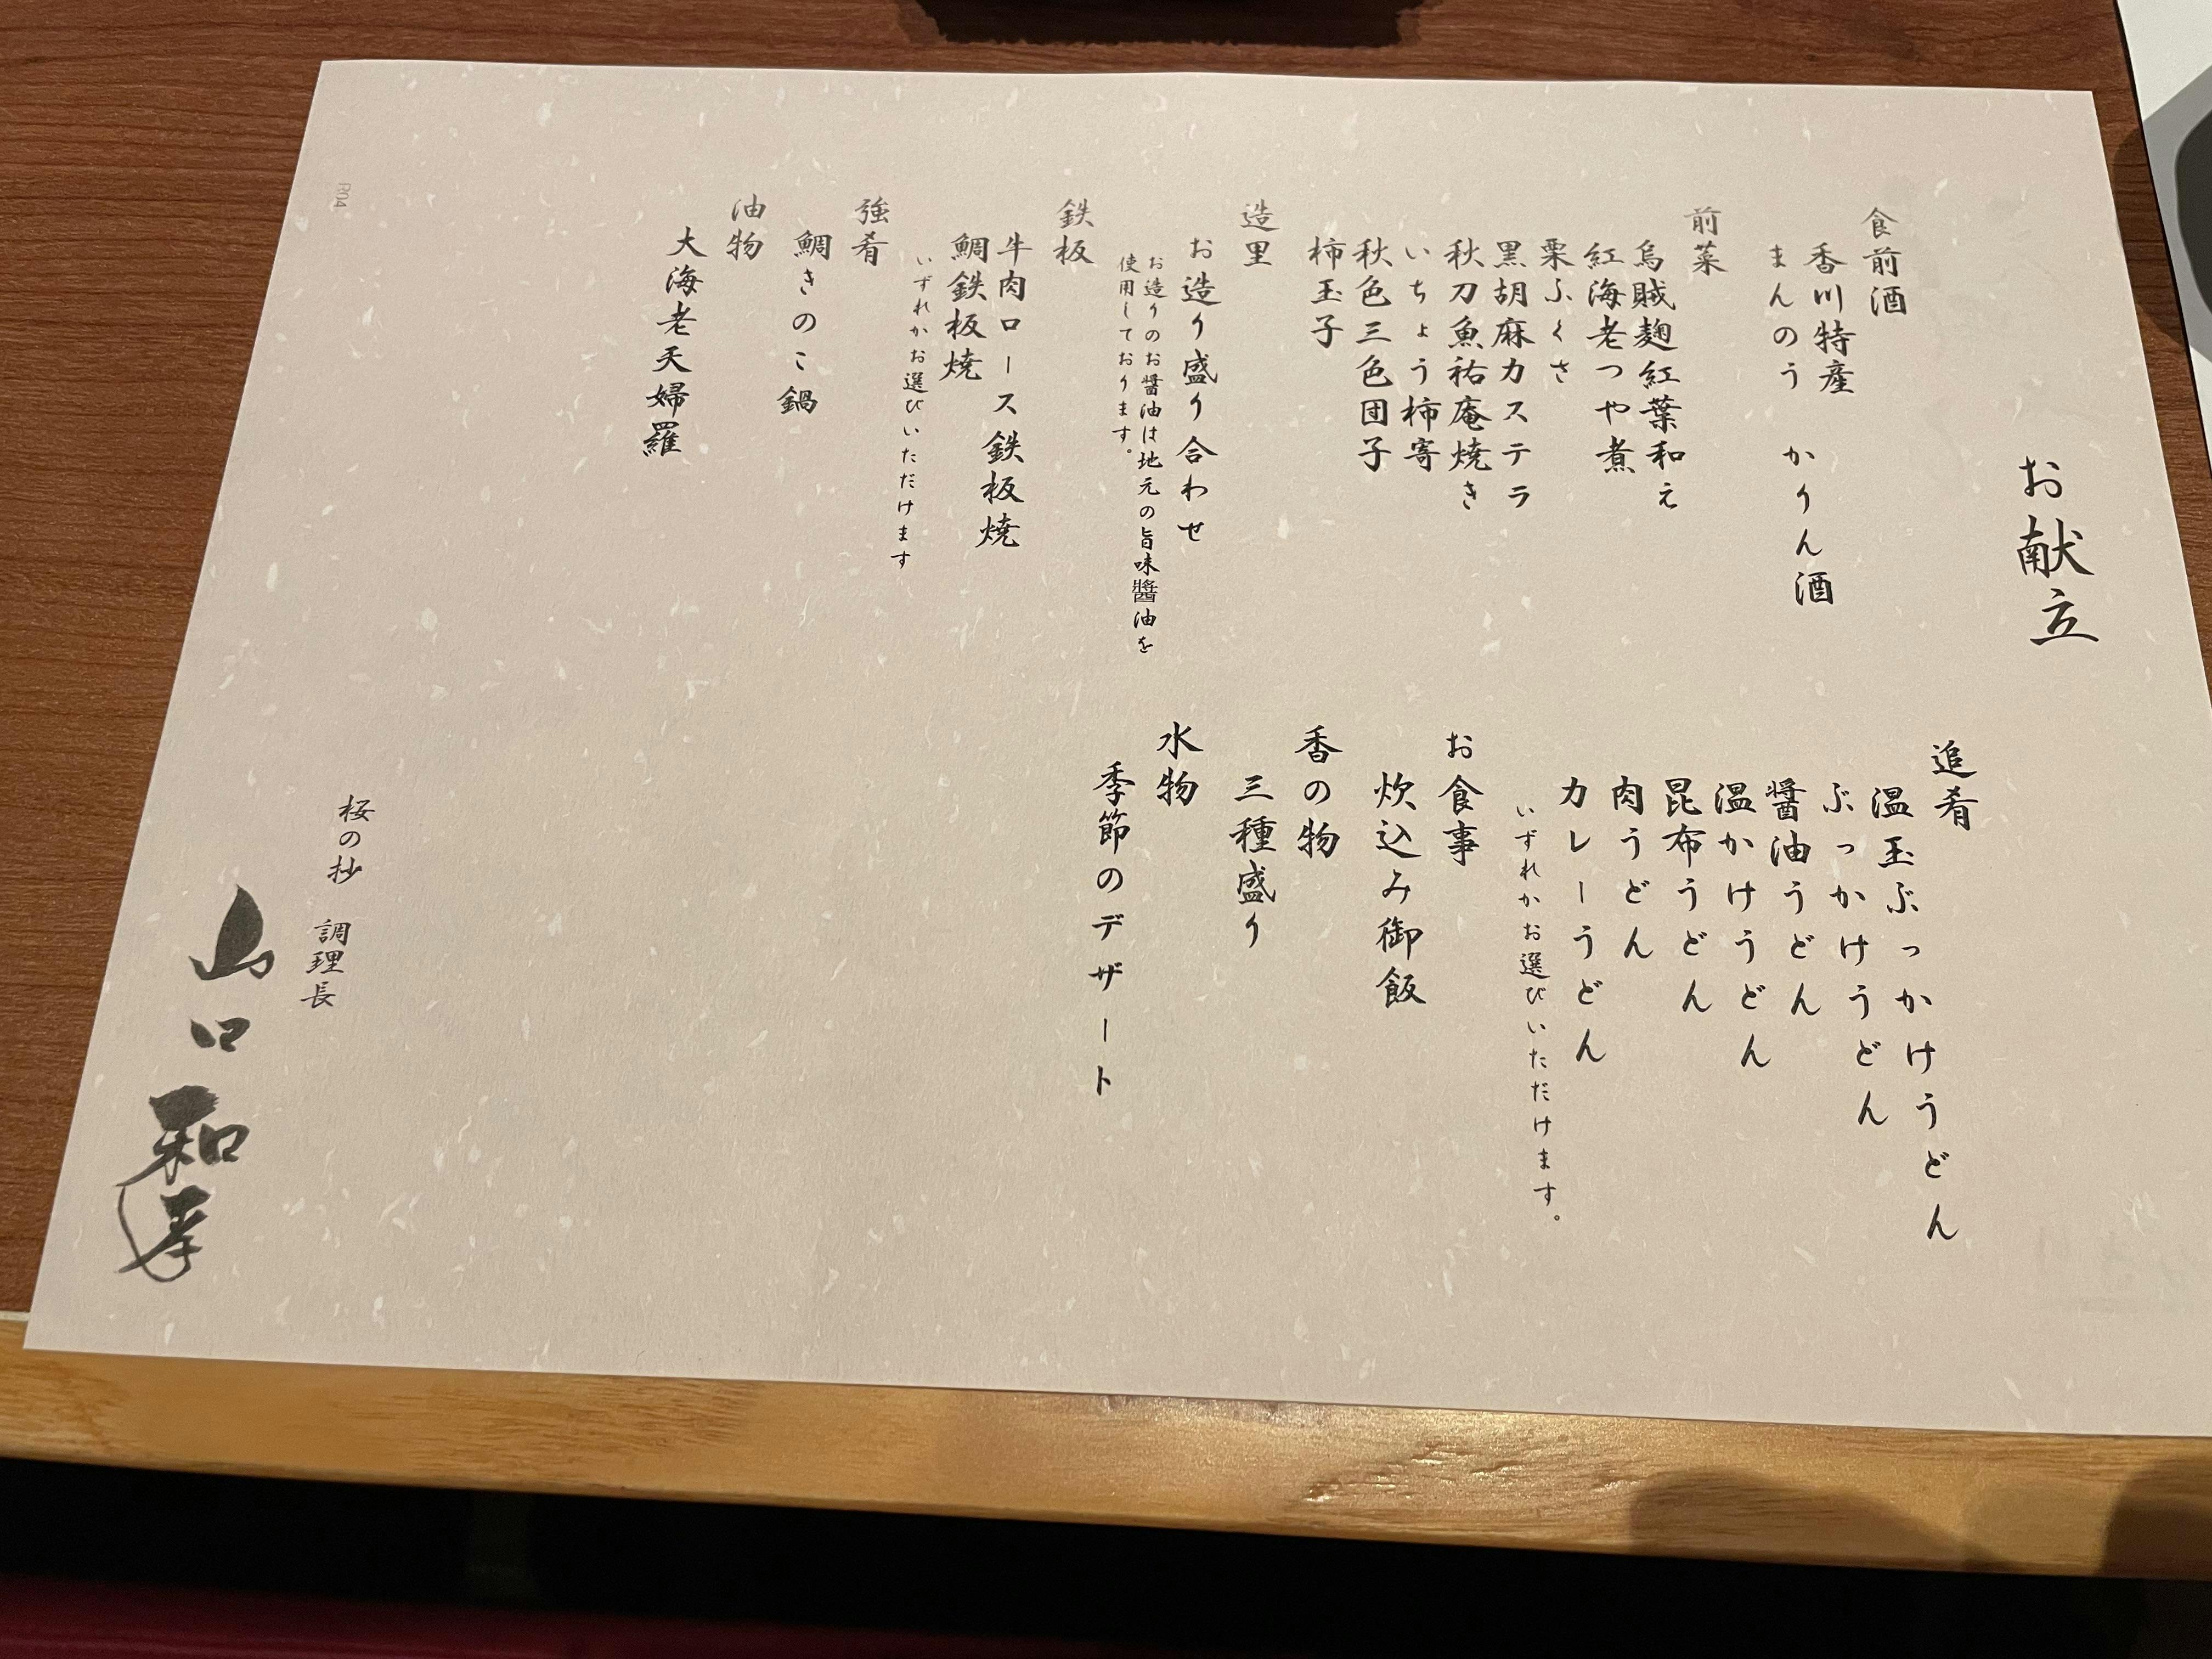 お献立
食前酒
香川特産
まんのう　かりん酒
前菜
烏賊麹紅葉和え
紅海老つや煮
栗ふくさ
黒胡麻カステラ
秋刀魚祐庵焼き
いちょう柿寄
秋色三色団子
柿玉子
造里
お造り盛り合わせ
お造りのお醤油は地元の旨味醬油を
使用しております。
鉄板
牛肉ロース鉄板焼
鯛鉄板焼
いずれかお選びいただけます
強肴
鯛きのこ鍋
油物
大海老天婦羅
追肴
温玉ぶっかけうどん
ぶっかけうどん
醬油うどん
温かけうどん
昆布うどん
肉うどん
カレーうどん
いずれかお選びいただけます。
お食事
炊込み御飯
香の物
三種盛り
水物
季節のデザート
桜の抄　調理長
山口和孝
R04